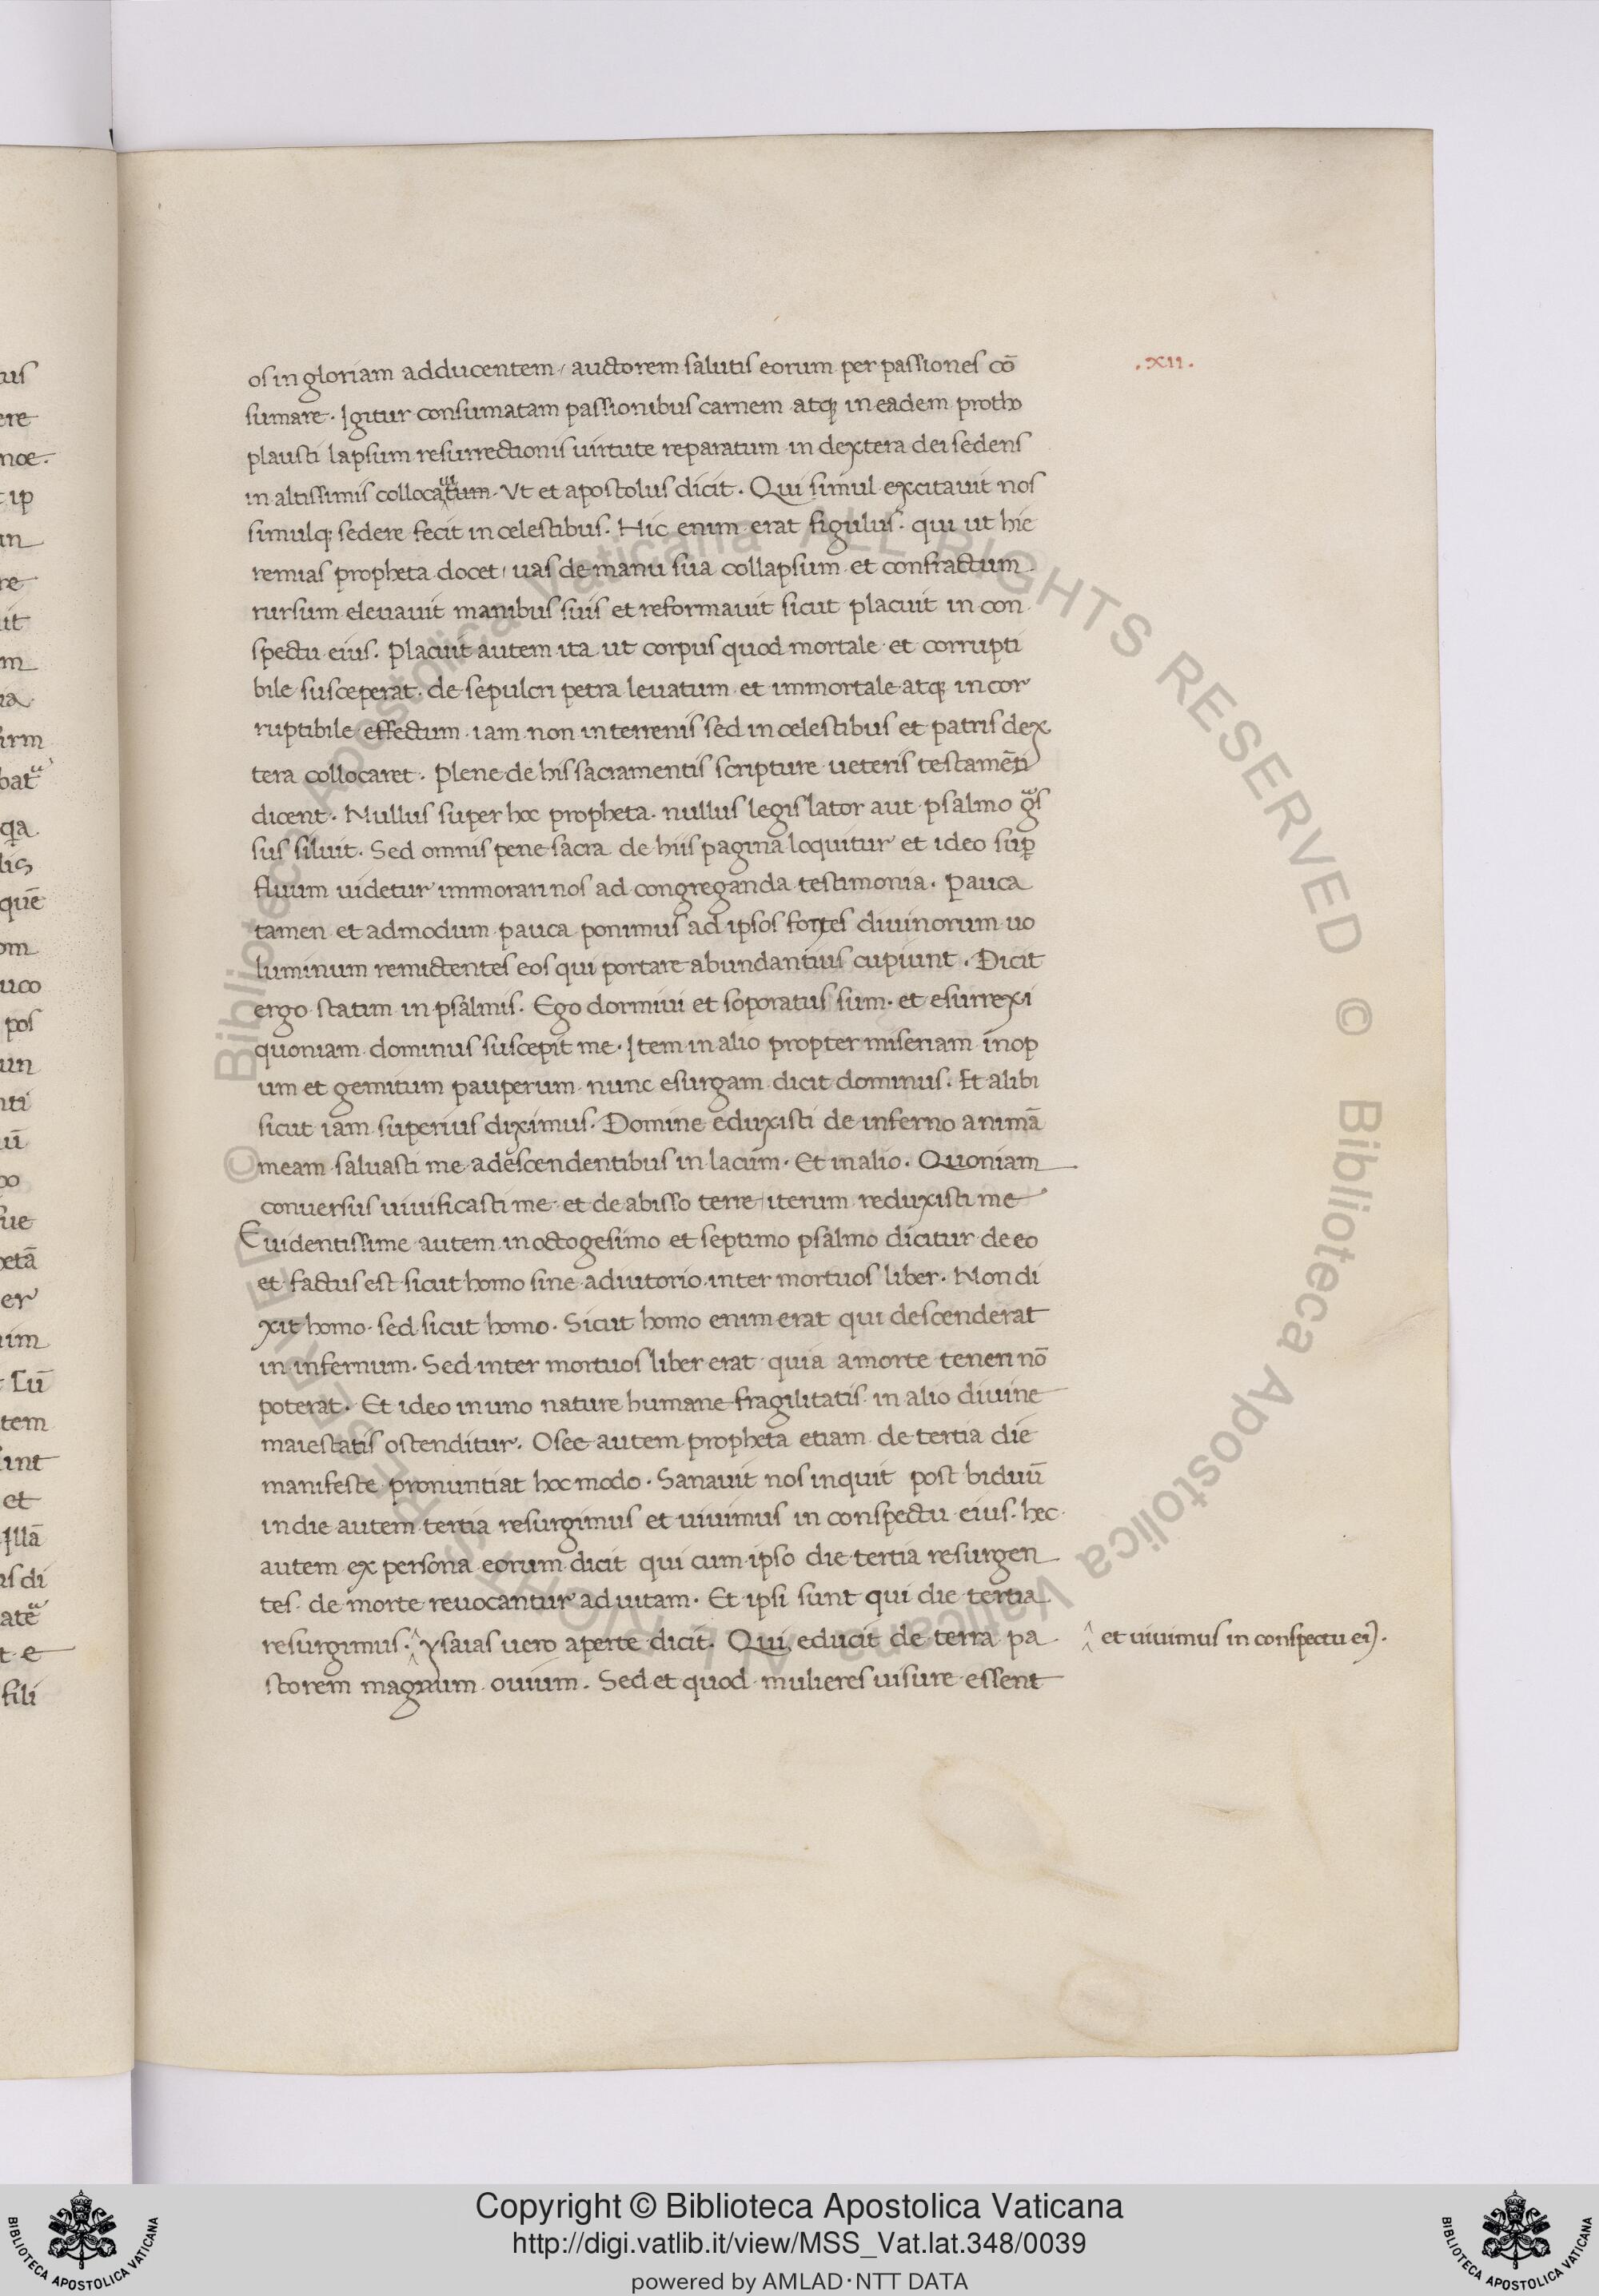 .XII.
os in gloriam adducentem, auctorem salutis eorum per passiones cō
sumare. Igitur consumatam passionibus carnem atq; in eadem protho
plausti lapsum resurrectionis uirtute reparatum in dextera dei sedens
in altissimis collocatum. Vt et apostolus dicit. Qui simul excitauit nos
simulq; sedere fecit in celestibus. Hic enim erat figulus. qui ut hie
remias propheta docet, uas de manu sua collapsum et confractum
rursum eleuauit manibus suis et reformauit sicut placuit in con
spectu eius. Placuit autem ita ut corpus quod mortale et corrupti
bile susceperat. de sepulcri petra leuatum et immortale atq; incor
ruptibile effectum iam non in terrenis sed in celestibus et patris dex
tera collocaret. Plene de his sacramentis scripture ueteris testamēti
dicent. Nullus super hoc propheta. nullus legislator aut psalmo gͣs
sus siluit. Sed omnis pene sacra de hiis pagina loquitur et ideo suꝑ
fluum uidetur immorari nos ad congreganda testimonia. Pauca
tamen et admodum pauca ponimus ad ipsos fontes diuinorum uo
luminum remictentes eos qui portare abundantius cupiunt. Dicit
ergo statim in psalmis. Ego dormiui et soporatus sum. et esurrexi
quoniam dominus suscepit me. Item in alio propter miseriam inop
um et gemitum pauperum nunc esurgam dicit dominus. Et alibi
sicut iam superius diximus. Domine eduxisti de inferno animā
meam saluasti me adescendentibus in lacum. Et in alio. Quoniam
conuersus uiuificasti me et de abisso terre iterum reduxisti me
Euidentissime autem in octogesimo et septimo psalmo dicitur de eo
et factus est sicut homo sine adiutorio inter mortuos liber. Non di
xit homo. sed sicut homo. Sicut homo enim erat qui descenderat
in infernum. Sed inter mortuos liber erat quia a morte teneri nō
poterat. Et ideo in uno nature humane fragilitatis in alio diuine
maiestatis ostenditur. Osee autem propheta etiam de tertia die
manifeste pronuntiat hoc modo. Sanauit nos inquit post biduū
in die autem tertia resurgimus et uiuimus in conspectu eius. hec
autem ex persona eorum dicit qui cum ipso die tertia resurgen
tes de morte reuocantur ad uitam. Et ipsi sunt qui die tertia
resurgimus. ysaias uero aperte dicit. Qui educit de terra pa
et uiuimus in conspectu ei).
storem magnum ouium. Sed et quod mulieres uisure essent
Copyright © Biblioteca Apostolica Vaticana
http://digi.vatlib.it/view/MSS_Vat.lat.348/0039
powered by AMLAD·NTT DATA
BIBLIOTECA APOSTOLICA VATICANA
BIBLIOTECA APOSTOLICA VATICANA
© Biblioteca Apostolica Vaticana ALL RIGHTS RESERVED
© Biblioteca Apostolica Vaticana ALL RIGHTS RESERVED